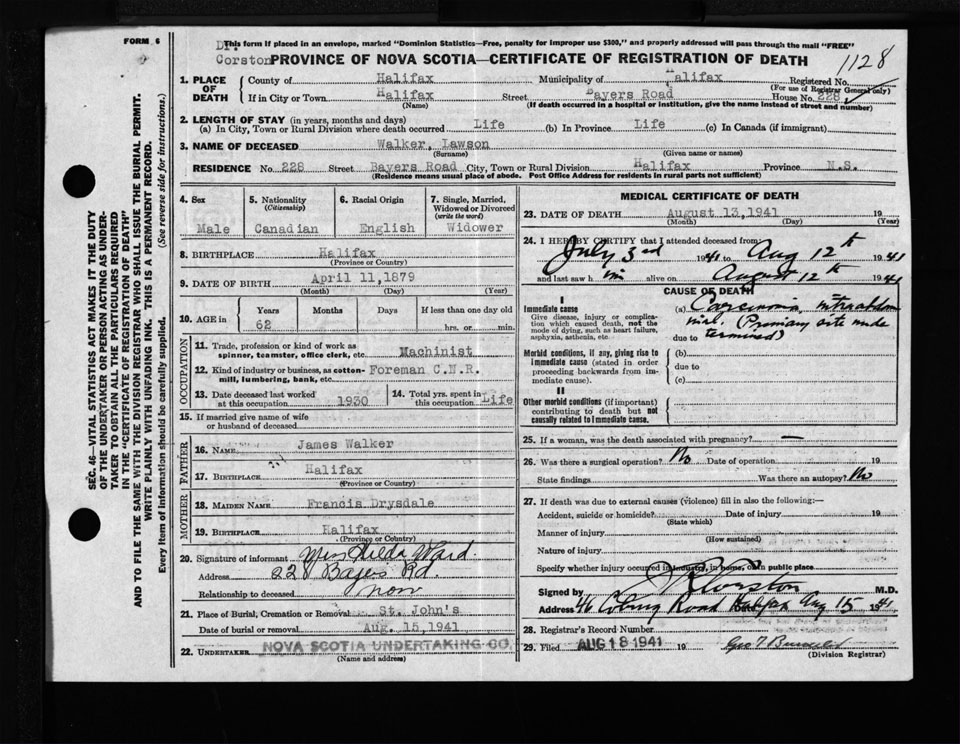 FORM 6
Dr.
Corston
This form if placed in an envelope, marked "Dominion Statistics—Free, penalty for improper use $300," and properly addressed will pass through the mail "FREE"
PROVINCE OF NOVA SCOTIA—CERTIFICATE OF REGISTRATION OF DEATH
1128
1. PLACE OF DEATH
County of Halifax Municipality of Halifax Registered No.
(For use of Registrar General only)
If in City or Town Halifax Street Bayers Road House No. 228
(Name) (If death occurred in a hospital or institution, give the name instead of street and number)
2. LENGTH OF STAY (in years, months and days)
(a) In City, Town or Rural Division where death occurred Life (b) In Province Life (c) In Canada (if immigrant)
3. NAME OF DECEASED Walker, Lawson
(Surname) (Given name or names)
RESIDENCE No. 228 Street Bayers Road City, Town or Rural Division Halifax Province N.S.
(Residence means usual place of abode. Post Office Address for residents in rural parts not sufficient)
4. Sex
Male
5. Nationality
(Citizenship)
Canadian
6. Racial Origin
English
7. Single, Married,
Widowed or Divorced
(write the word)
Widower
8. BIRTHPLACE Halifax
(Province or Country)
9. DATE OF BIRTH April 11, 1879
(Month) (Day) (Year)
10. AGE in
Years Months Days If less than one day old
62 hrs. or min.
OCCUPATION
11. Trade, profession or kind of work as
spinner, teamster, office clerk, etc. Machinist
12. Kind of industry or business, as cotton-
mill, lumbering, bank, etc. Foreman C.N.R.
13. Date deceased last worked
at this occupation 1930
14. Total yrs. spent in
this occupation Life
15. If married give name of wife
or husband of deceased
FATHER
16. NAME James Walker
17. BIRTHPLACE Halifax
(Province or Country)
MOTHER
18. MAIDEN NAME Francis Drysdale
19. BIRTHPLACE Halifax
(Province or Country)
20. Signature of informant Miss Hilda Ward
Address 228 Bayers Rd.
Relationship to deceased none
21. Place of Burial, Cremation or Removal St. John's
Date of burial or removal Aug. 15, 1941
22. UNDERTAKER NOVA SCOTIA UNDERTAKING CO.
(Name and address)
MEDICAL CERTIFICATE OF DEATH
23. DATE OF DEATH August 13, 1941 19
(Month) (Day) (Year)
24. I HEREBY CERTIFY that I attended deceased from
July 3rd 1941 to Aug 12th 1941
and last saw him alive on August 12th 1941
CAUSE OF DEATH
I
Immediate cause
Give disease, injury or complica-
tion which caused death, not the
mode of dying, such as heart failure,
asphyxia, asthenia, etc.
(a) Carcinoma, intraabdom
inal. (Primary site unde
due to termined)
Morbid conditions, if any, giving rise to
immediate cause (stated in order
proceeding backwards from im-
mediate cause).
(b)
due to
(c)
II
Other morbid conditions (if important)
contributing to death but not
causally related to immediate cause.
25. If a woman, was the death associated with pregnancy? —
26. Was there a surgical operation? No Date of operation 19
State findings Was there an autopsy? No
27. If death was due to external causes (violence) fill in also the following:—
Accident, suicide or homicide? Date of injury 19
(State which)
Manner of injury
(How sustained)
Nature of injury
Specify whether injury occurred in industry, in home, or in public place
Signed by Corston M.D.
Address 46 Coburg Road Halifax Aug 15 1941
28. Registrar's Record Number
29. Filed AUG 18 1941 19
(Division Registrar)
SEC. 46—VITAL STATISTICS ACT MAKES IT THE DUTY
OF THE UNDERTAKER OR PERSON ACTING AS UNDER-
TAKER TO OBTAIN ALL THE PARTICULARS REQUIRED
IN THE "CERTIFICATE OF REGISTRATION OF DEATH"
AND TO FILE THE SAME WITH THE DIVISION REGISTRAR WHO SHALL ISSUE THE BURIAL PERMIT.
WRITE PLAINLY WITH UNFADING INK. THIS IS A PERMANENT RECORD.
Every item of information should be carefully supplied. (See reverse side for instructions.)